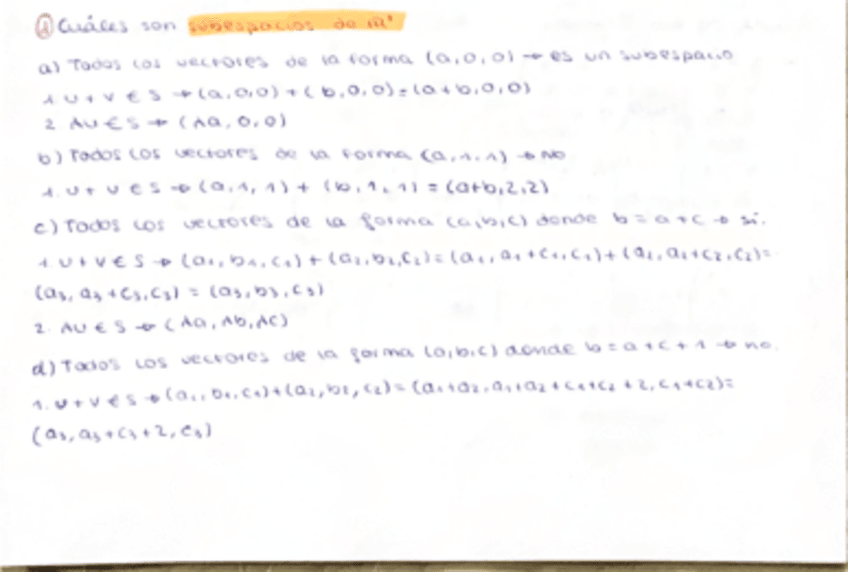 ① Cuáles son subespacios de ℝ³
a) Todos los vectores de la forma (a,0,0) → es un subespacio
1. U + V ∈ S → (a,0,0) + (b,0,0) = (a+b,0,0)
2. λU ∈ S → (λa,0,0)
b) Todos los vectores de la forma (a,1,1) → no
1. U + V ∈ S → (a,1,1) + (b,1,1) = (a+b,2,2)
c) Todos los vectores de la forma (a,b,c) donde b = a + c → sí.
1. U + V ∈ S → (a₁,b₁,c₁) + (a₂,b₂,c₂) = (a₁,a₁+c₁,c₁) + (a₂,a₂+c₂,c₂) =
(a₃,a₃+c₃,c₃) = (a₃,b₃,c₃)
2. λU ∈ S → (λa,λb,λc)
d) Todos los vectores de la forma (a,b,c) donde b = a + c + 1 → no.
1. U + V ∈ S → (a₁,b₁,c₁) + (a₂,b₂,c₂) = (a₁+a₂,a₁+a₂+c₁+c₂+2,c₁+c₂) =
(a₃,a₃+c₃+2,c₃)